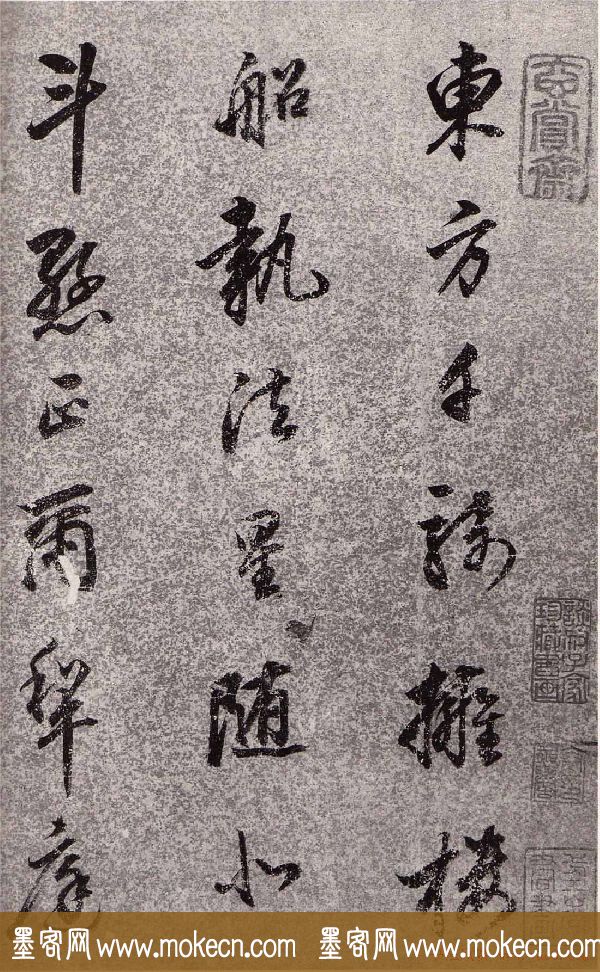 東方千騎擁樓
船執法星随北
斗懸正爾犂庭
墨客网 www.mokecn.com 墨客网 www.mokecn.com